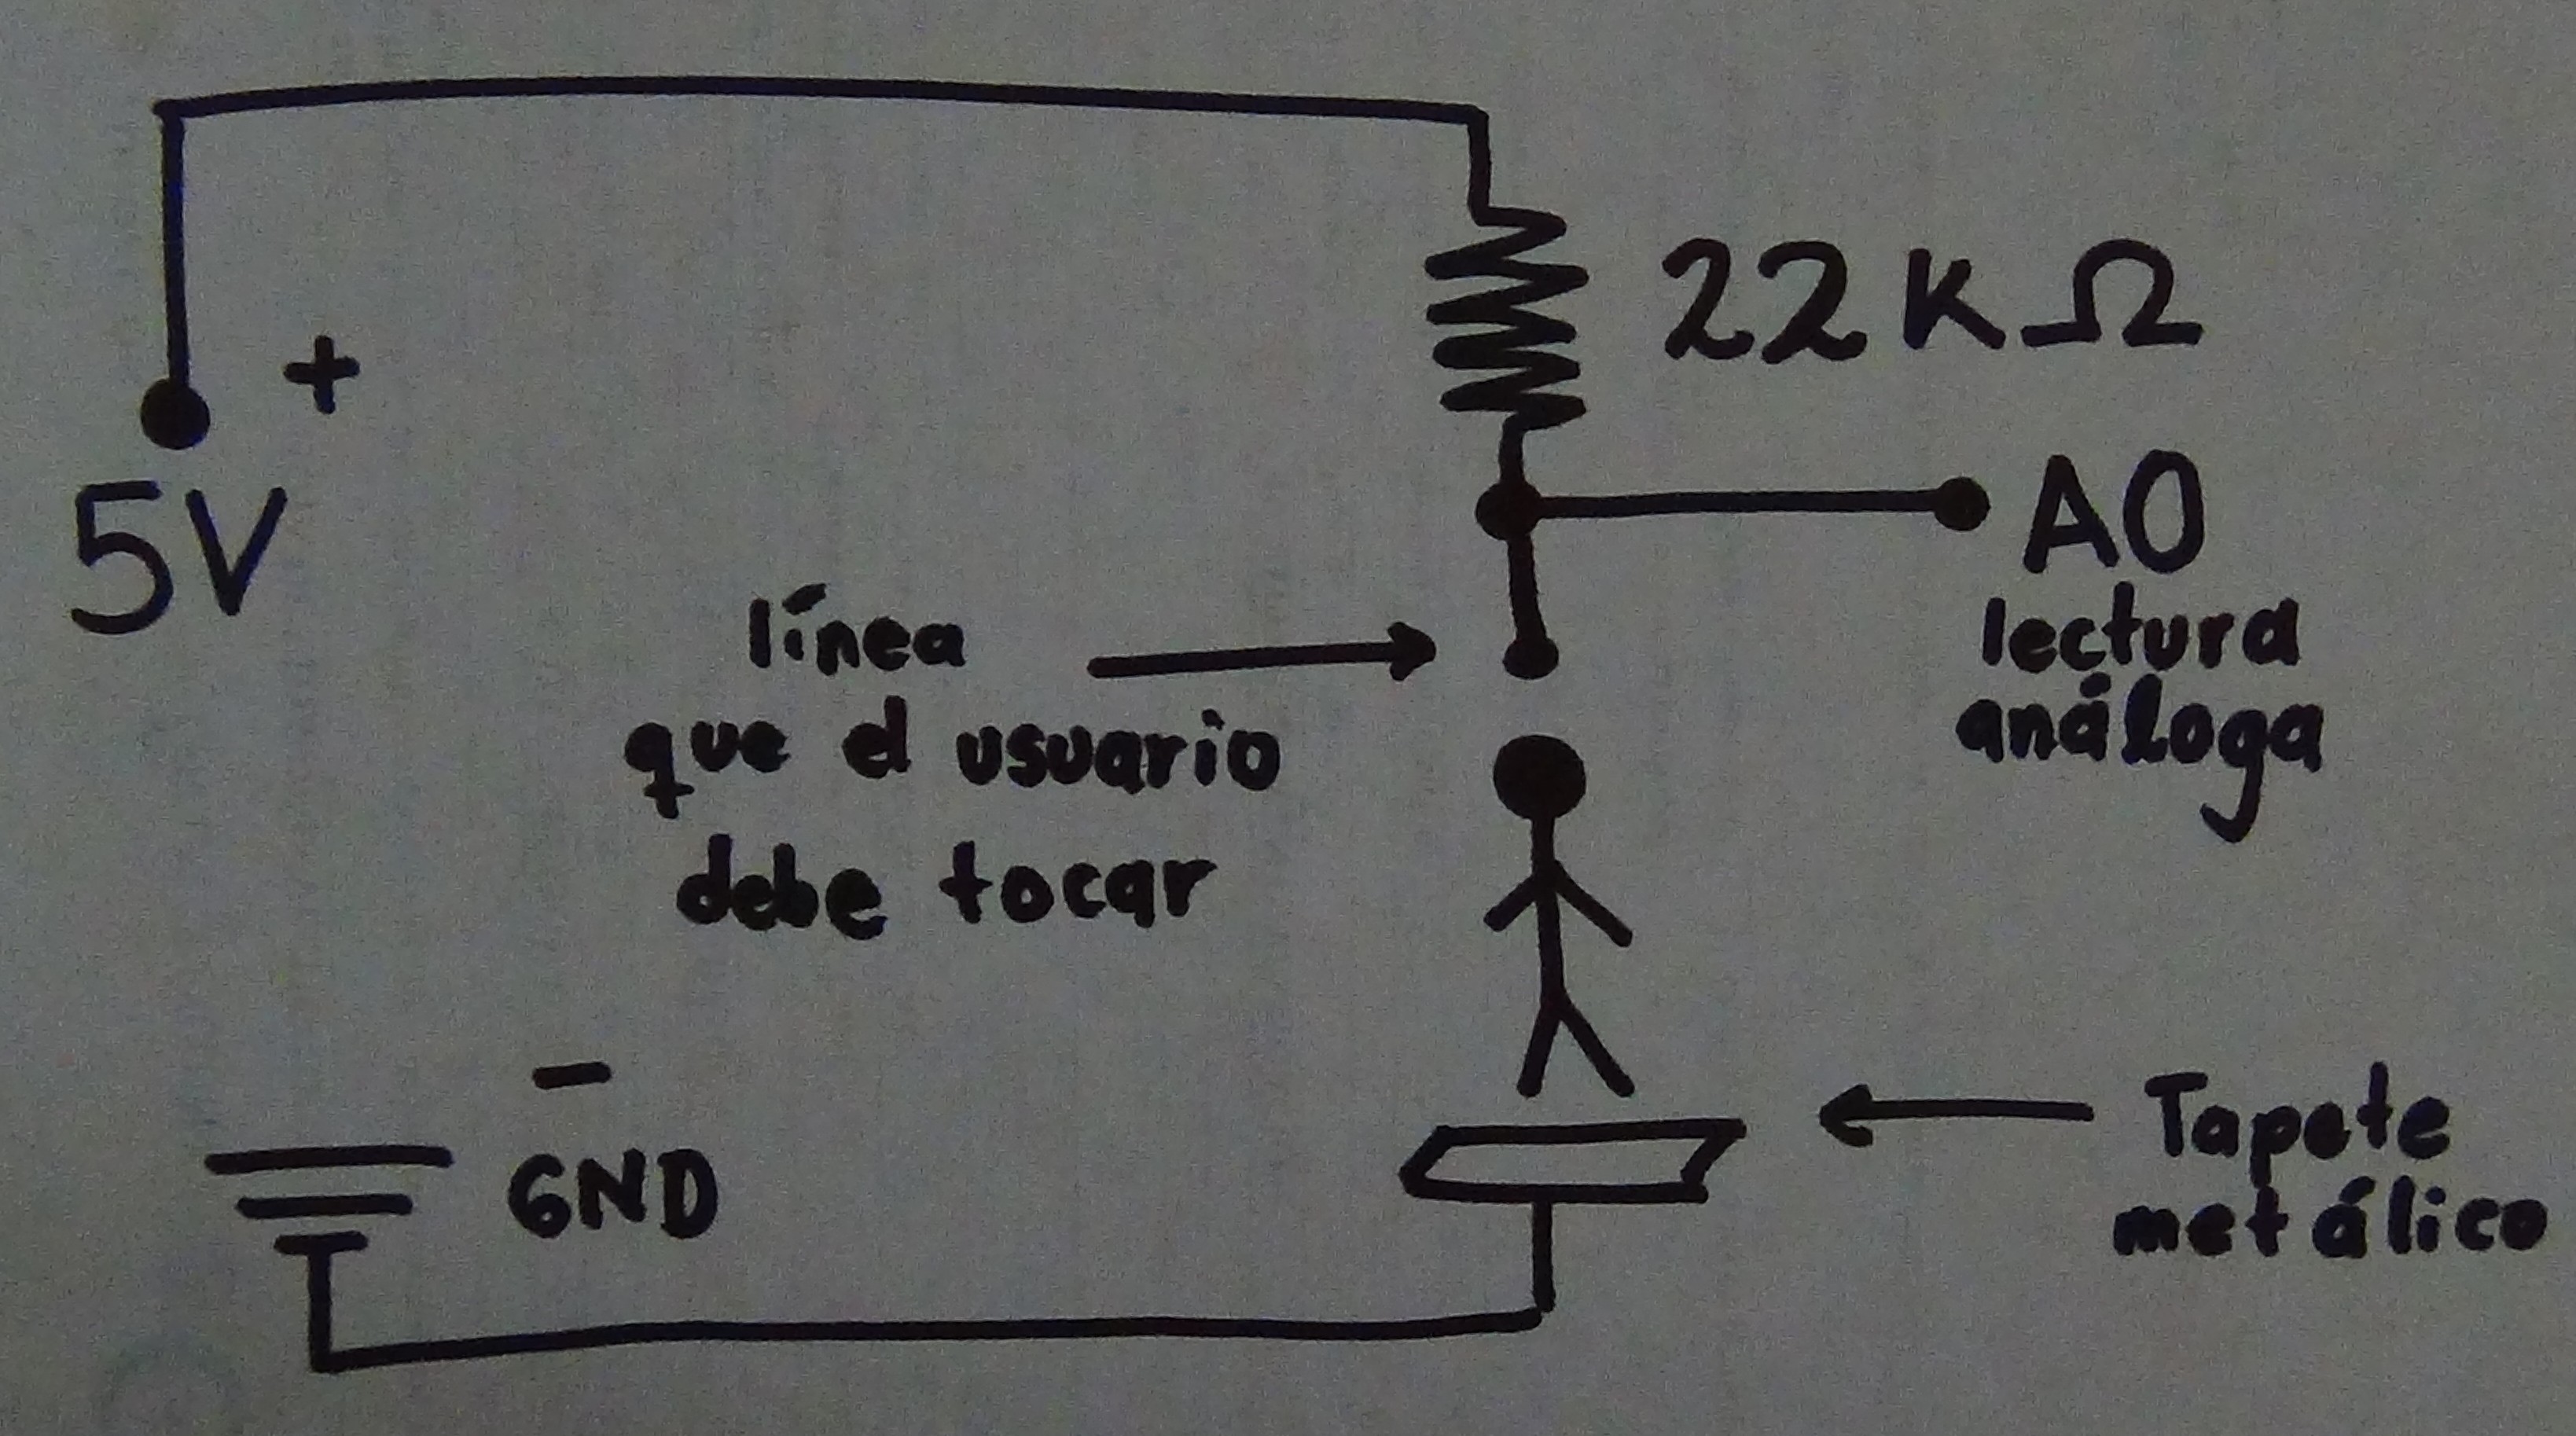 +
5V
22KΩ
A0
lectura
análoga
línea
que el usuario
debe tocar
-
GND
Tapete
metálico